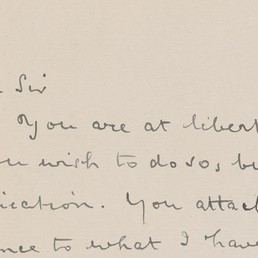 Sir
You are at libert
u wish to do so, bu
ication. You attac
nce to what I have